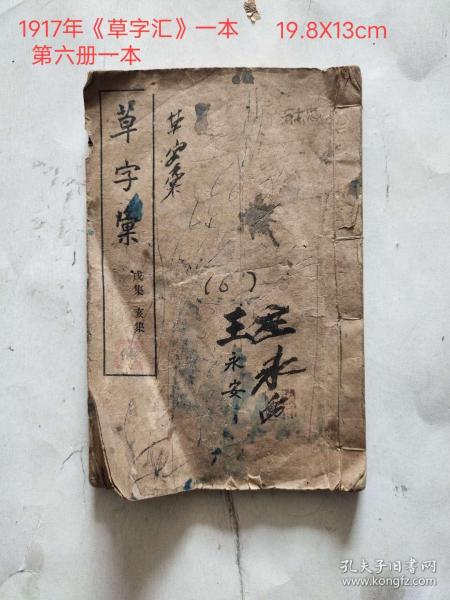 1917年《草字汇》一本 19.8X13cm
第六册一本
草字彙
戌集 亥集
草字彙
(6)
王永安
王永安
孔夫子旧书网
www.kongfz.com